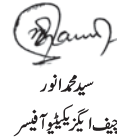 سید محمد انور
چیف ایگزیکیٹو آفیسر